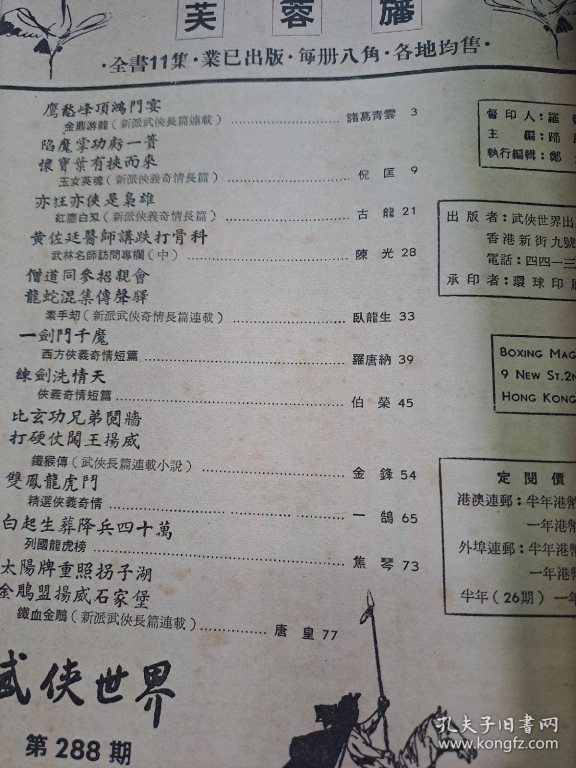 芙蓉
·全書11集·業已出版·每册八角·各地均售·
鷹愁峰頂鴻門宴
金鼎游龍（新派武俠長篇連載）諸葛青雲 3
陷魔掌功虧一簣
懷寶葉有挾而來
玉女英魂（新派俠義奇情長篇）倪匡 9
亦狂亦俠是梟雄
紅塵白刄（新派俠義奇情長篇）古龍 21
黄佐廷醫師講跌打骨科
武林名師訪問專欄（中）陳光 28
僧道同參招親會
龍蛇混集傳聲驛
素手刧（新派武俠奇情長篇連載）臥龍生 33
一劍鬥千魔
西方俠義奇情短篇 羅唐納 39
練劍洗情天
俠義奇情短篇 伯榮 45
比玄功兄弟鬩牆
打硬仗闖王揚威
鐵猴傳（武俠長篇連載小說）金鋒 54
雙鳳龍虎鬥
精選俠義奇情 一鵠 65
白起生葬降兵四十萬
列國龍虎榜 焦琴 73
太陽牌重照拐子湖
金鵰盟揚威石家堡
鐵血金鵰（新派武俠長篇連載）唐皇 77
武俠世界
第288期
督印人：羅
主編：蹄
執行編輯：鄭
出版者：武俠世界出
香港新街九號
電話：四四一三
承印者：環球印
BOXING MAG
9 NEW ST. 2N
HONG KONG
定閱價
港澳連郵：半年港幣
一年港幣
外埠連郵：半年港幣
一年港
半年（26期）一年
孔夫子旧書网
www.kongfz.com